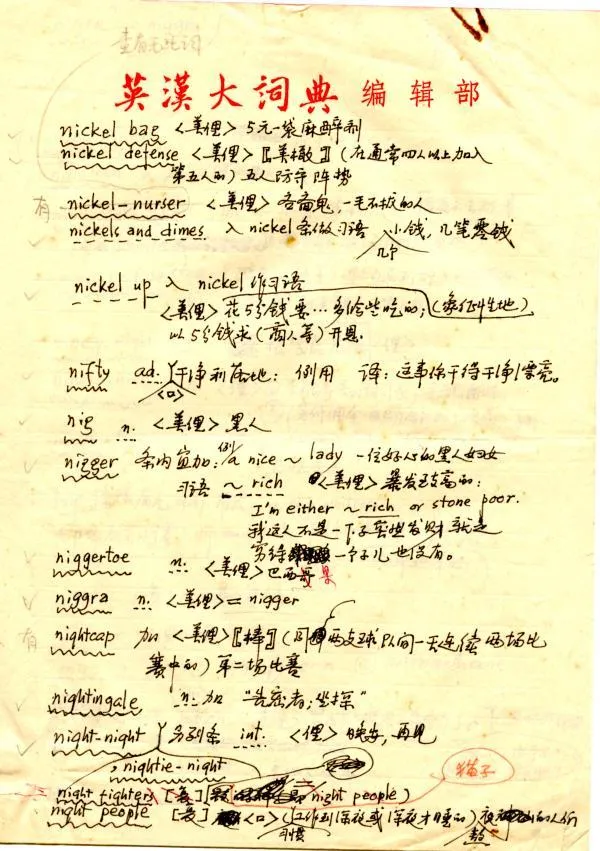 查有无此词
英漢大词典 编辑部
nickel bag <美俚> 5元一袋麻醉剂
nickel defense <美俚>〖美橄〗(在通常四人以上加入
第五人的) 五人防守阵势
有 nickel-nurser <美俚> 吝啬鬼,一毛不拔的人
nickels and dimes 入 nickel 条做习语 小钱,几笔零钱
几个
nickel up 入 nickel 作习语
<美俚> 花5分钱要…多给些吃的;(象征性地)
以5分钱求(商人等)开恩.
nifty ad. 干净利落地: 例用 译: 这事你干得干净漂亮。
<口>
nig n. <美俚> 黑人
nigger 条内宜加: 例 a nice ~ lady 一位好心的黑人妇女
习语 ~ rich <美俚> 暴发致富的:
I'm either ~ rich or stone poor.
我这人不是一下子突然发财就是
穷得一个子儿也没有。
niggertoe n. <美俚> 巴西果
niggra n. <美俚> = nigger
有 nightcap 加 <美俚>〖棒〗(同两支球队间一天连续两场比
赛中的) 第二场比赛
nightingale n. 加 "告密者;坐探"
night-night 另列条 int. <俚> 晚安,再见
, nightie-night
猫子
night fighters [美] night people)
night people [美] <口> (工作到深夜或深夜才睡的) 夜的人们
习惯